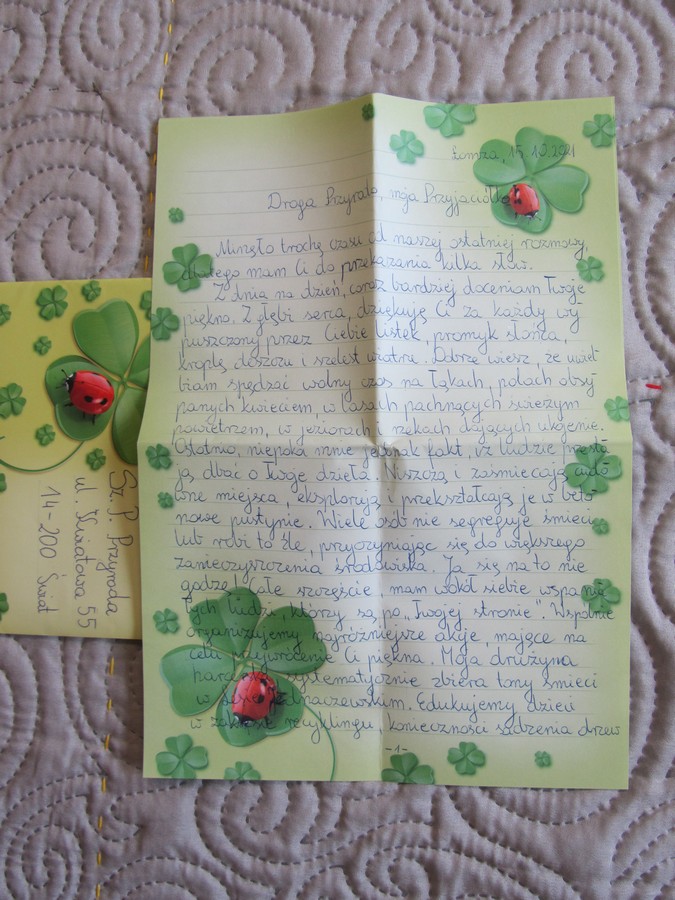 Łomża, 15.10.2021
Droga Przyrodo, moja Przyjaciółko,
Minęło trochę czasu od naszej ostatniej rozmowy,
dlatego mam Ci do przekazania kilka słów.
Z dnia na dzień, coraz bardziej doceniam Twoje
piękno. Z głębi serca, dziękuję Ci za każdy wy
puszczony przez Ciebie listek, promyk słońca,
kroplę deszczu i szelest wiatru. Dobrze wiesz, że uwiel
biam spędzać wolny czas na łąkach, polach obsy
panych kwieciem, w lasach pachnących świeżym
powietrzem, w jeziorach i rzekach dających ukojenie.
Ostatnio, niepokoi mnie jednak fakt, iż ludzie przesta
ją dbać o Twoje dzieła. Niszczą i zaśmiecają cudo
wne miejsca, eksplorują i przekształcają je w beto
nowe pustynie. Wiele osób nie segreguje śmieci
lub robi to źle, przyczyniając się do większego
zanieczyszczenia środowiska. Ja się na to nie
godzę! Całe szczęście, mam wokół siebie wspania
łych ludzi, którzy są po „Twojej stronie". Wspólnie
organizujemy najróżniejsze akcje, mające na
celu przywrócenie Ci piękna. Moja drużyna
systematycznie zbiera tony śmieci
w Edukujemy dzieci
w zakresie recyklingu i konieczności sadzenia drzew
-1-
Sz. P. Przyroda
ul. Kwiatowa 55
14-200 Świat